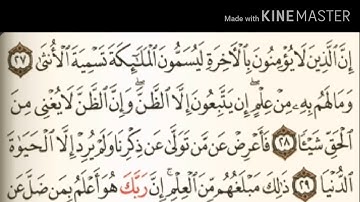 Made with KINEMASTER
إِنَّ الَّذِينَ لَا يُؤْمِنُونَ بِالْآخِرَةِ لَيُسَمُّونَ الْمَلَائِكَةَ تَسْمِيَةَ الْأُنثَىٰ ٢٧
وَمَا لَهُم بِهِ مِنْ عِلْمٍ ۖ إِن يَتَّبِعُونَ إِلَّا الظَّنَّ ۖ وَإِنَّ الظَّنَّ لَا يُغْنِي مِنَ
الْحَقِّ شَيْئًا ٢٨ فَأَعْرِضْ عَن مَّن تَوَلَّىٰ عَن ذِكْرِنَا وَلَمْ يُرِدْ إِلَّا الْحَيَوٰةَ
الدُّنْيَا ٢٩ ذَٰلِكَ مَبْلَغُهُم مِّنَ الْعِلْمِ ۚ إِنَّ رَبَّكَ هُوَ أَعْلَمُ بِمَن ضَلَّ عَن